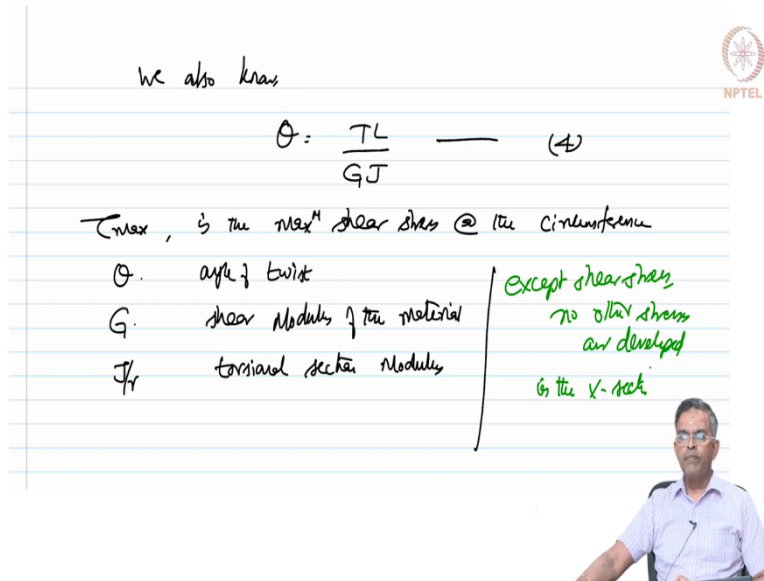 We also know
NPTEL
θ = TL / GJ —— (4)
τmax, is the maxᴹ shear stress @ the circumference
θ. angle of twist
G. shear Modulus of the material
J/r torsional section Modulus
except shear stress,
no other stresses
are developed
in the x-section